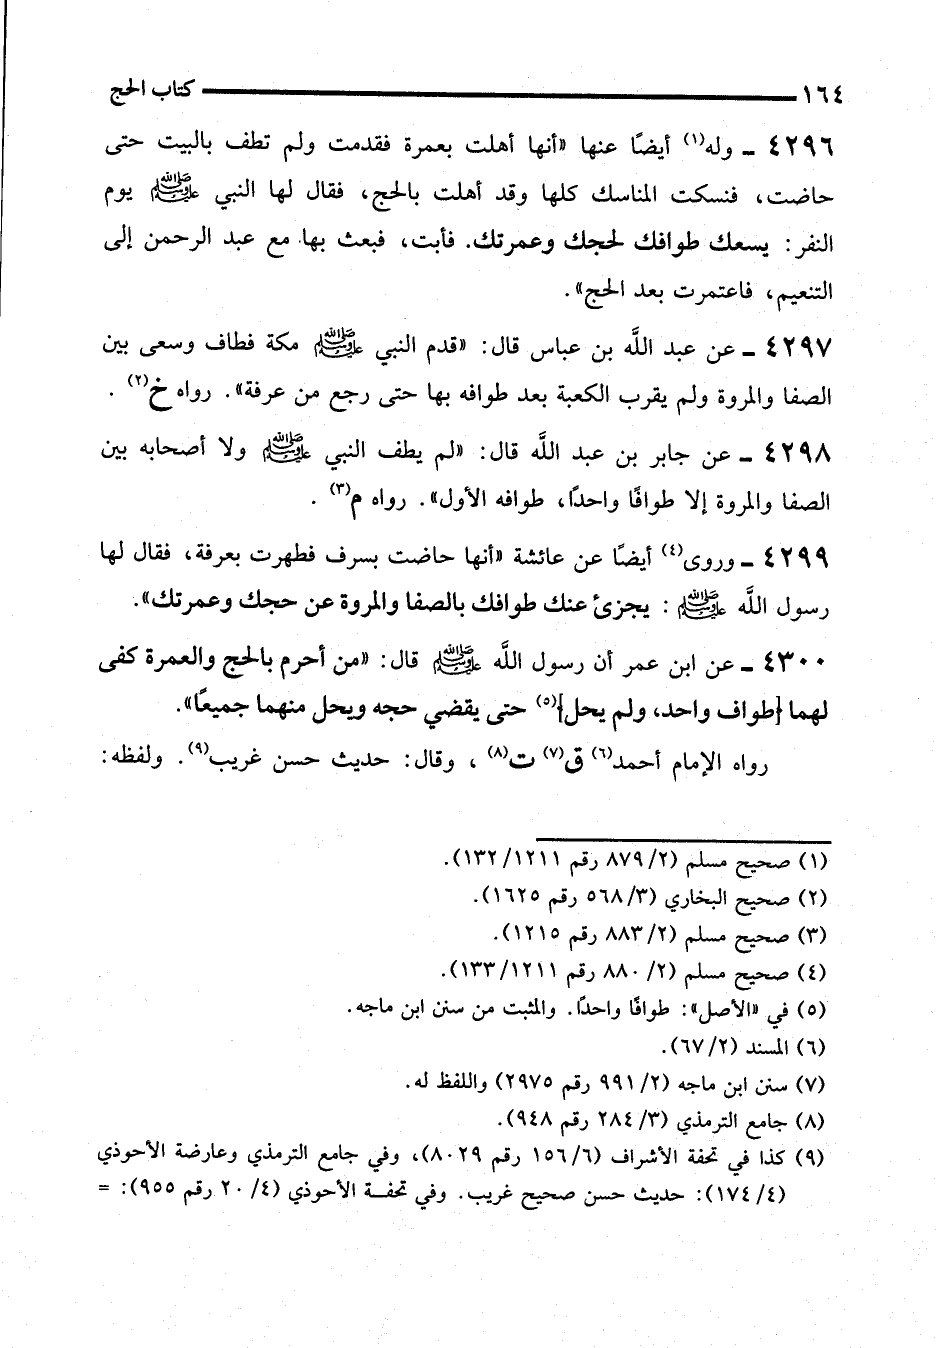 ١٦٤ كتاب الحج
٤٢٩٦ ـ وله(١) أيضًا عنها «أنها أهلت بعمرة فقدمت ولم تطف بالبيت حتى
حاضت، فنسكت المناسك كلها وقد أهلت بالحج، فقال لها النبي ﷺ يوم
النفر: يسعك طوافك لحجك وعمرتك. فأبت، فبعث بها مع عبد الرحمن إلى
التنعيم، فاعتمرت بعد الحج».
٤٢٩٧ ـ عن عبد اللَّه بن عباس قال: «قدم النبي ﷺ مكة فطاف وسعى بين
الصفا والمروة ولم يقرب الكعبة بعد طوافه بها حتى رجع من عرفة». رواه خ(٢) .
٤٢٩٨ ـ عن جابر بن عبد اللَّه قال: «لم يطف النبي ﷺ ولا أصحابه بين
الصفا والمروة إلا طوافًا واحدًا، طوافه الأول». رواه م(٣) .
٤٢٩٩ ـ وروى(٤) أيضًا عن عائشة «أنها حاضت بسرف فطهرت بعرفة، فقال لها
رسول اللَّه ﷺ : يجزئ عنك طوافك بالصفا والمروة عن حجك وعمرتك».
٤٣٠٠ ـ عن ابن عمر أن رسول اللَّه ﷺ قال: «من أحرم بالحج والعمرة كفى
لهما [طواف واحد، ولم يحل](٥) حتى يقضي حجه ويحل منهما جميعًا».
رواه الإمام أحمد(٦) ق(٧) ت(٨) ، وقال: حديث حسن غريب(٩). ولفظه:
(١) صحيح مسلم (٢/ ٨٧٩ رقم ١٢١١/ ١٣٢).
(٢) صحيح البخاري (٣/ ٥٦٨ رقم ١٦٢٥).
(٣) صحيح مسلم (٢/ ٨٨٣ رقم ١٢١٥).
(٤) صحيح مسلم (٢/ ٨٨٠ رقم ١٢١١/ ١٣٣).
(٥) في «الأصل»: طوافًا واحدًا. والمثبت من سنن ابن ماجه.
(٦) المسند (٢/ ٦٧).
(٧) سنن ابن ماجه (٢/ ٩٩١ رقم ٢٩٧٥) واللفظ له.
(٨) جامع الترمذي (٣/ ٢٨٤ رقم ٩٤٨).
(٩) كذا في تحفة الأشراف (٦/ ١٥٦ رقم ٨٠٢٩)، وفي جامع الترمذي وعارضة الأحوذي
(٤/ ١٧٤): حديث حسن صحيح غريب. وفي تحفــة الأحوذي (٤/ ٢٠ رقم ٩٥٥): =